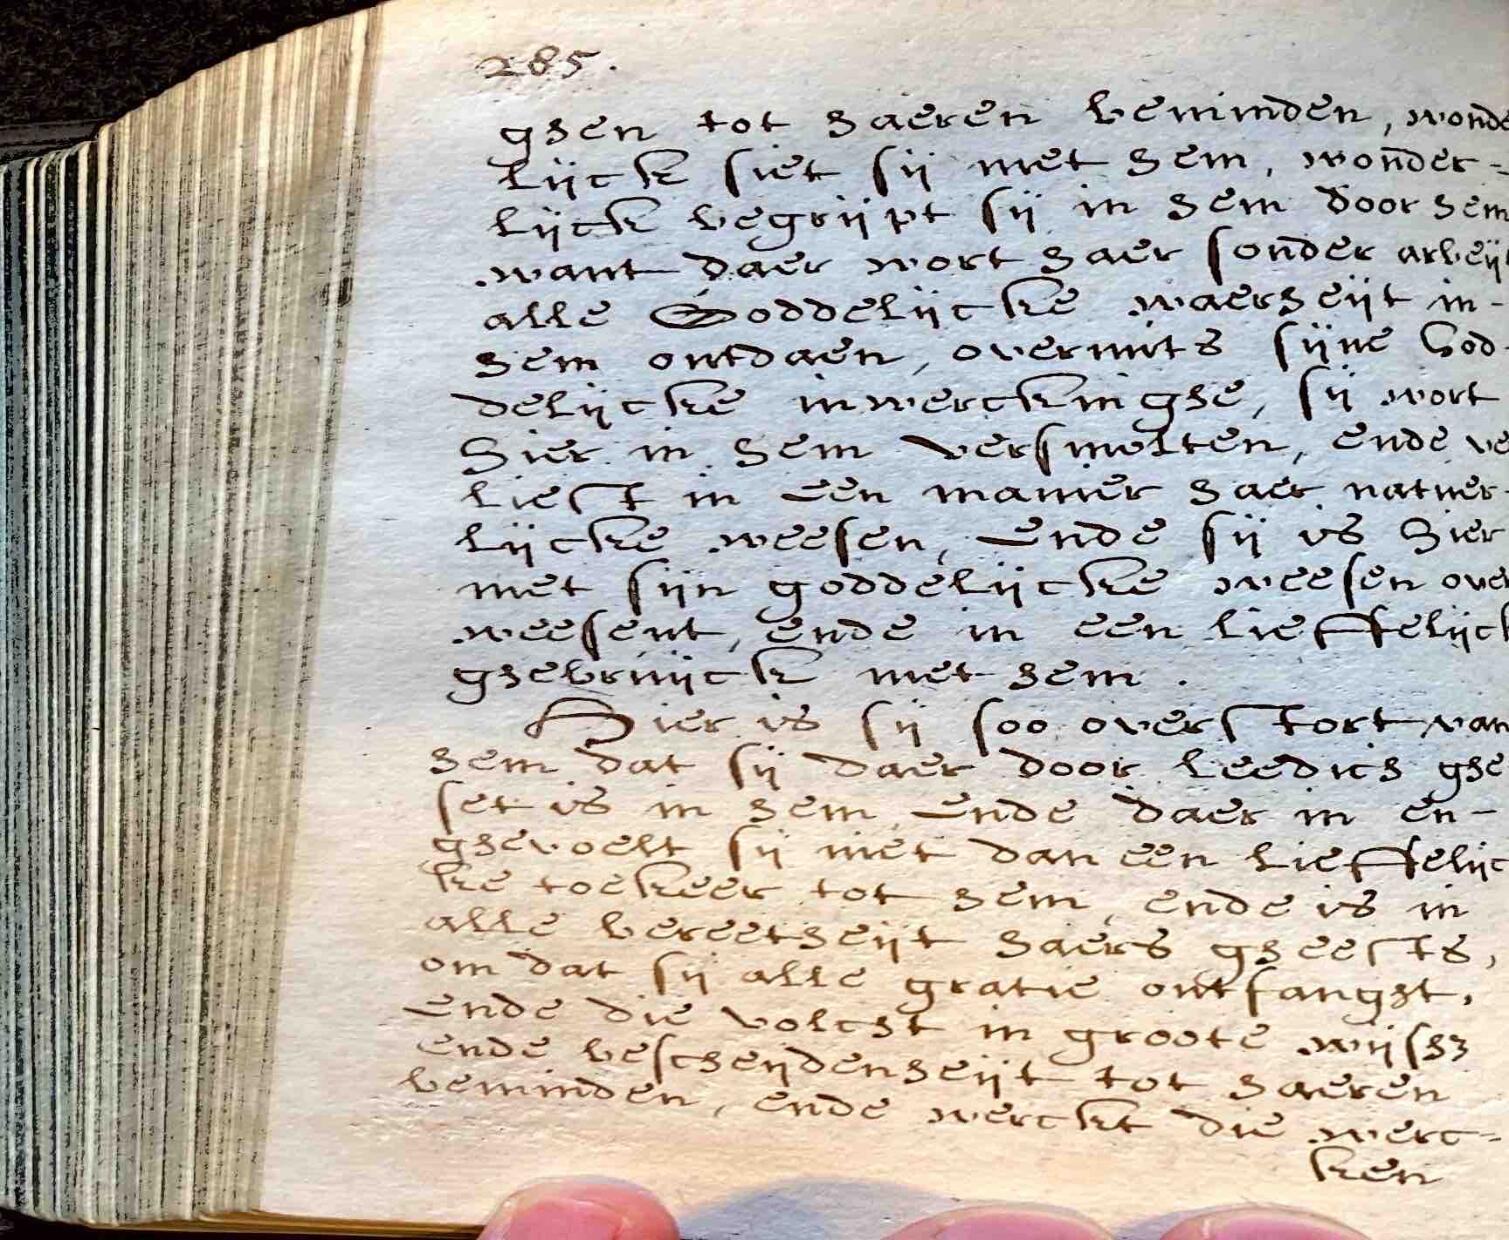 285.
ghen tot haeren beminden, wonde
lijck siet sij met hem, wonder-
lijck begrijpt sij in hem door hem
want daer wort haer sonder arbeijt
alle Goddelijcke waerheijt in-
hem ontdaen, overmits sijne God-
delijcke inwerckinghe, sij wort
hier in hem versmolten, ende ve
liest in een manier haer natuer-
lijcke weesen, Ende sij is hier
met sijn goddelijcke weesen over
weesent, ende in een lieffelijck
ghebruijck met hem.
Hier is sij soo overstort van
hem dat sij daer door leedich ghe
set is in hem, Ende daer in en-
ghevoelt sij niet dan een lieffelijc
ke toekeer tot hem, ende is in
alle bereetheijt haers gheests,
om dat sij alle gratie ontfanght,
Ende die volcht in groote wijsh3
ende bescheijdenheijt tot haeren
beminden, ende werckt die werc-
ken